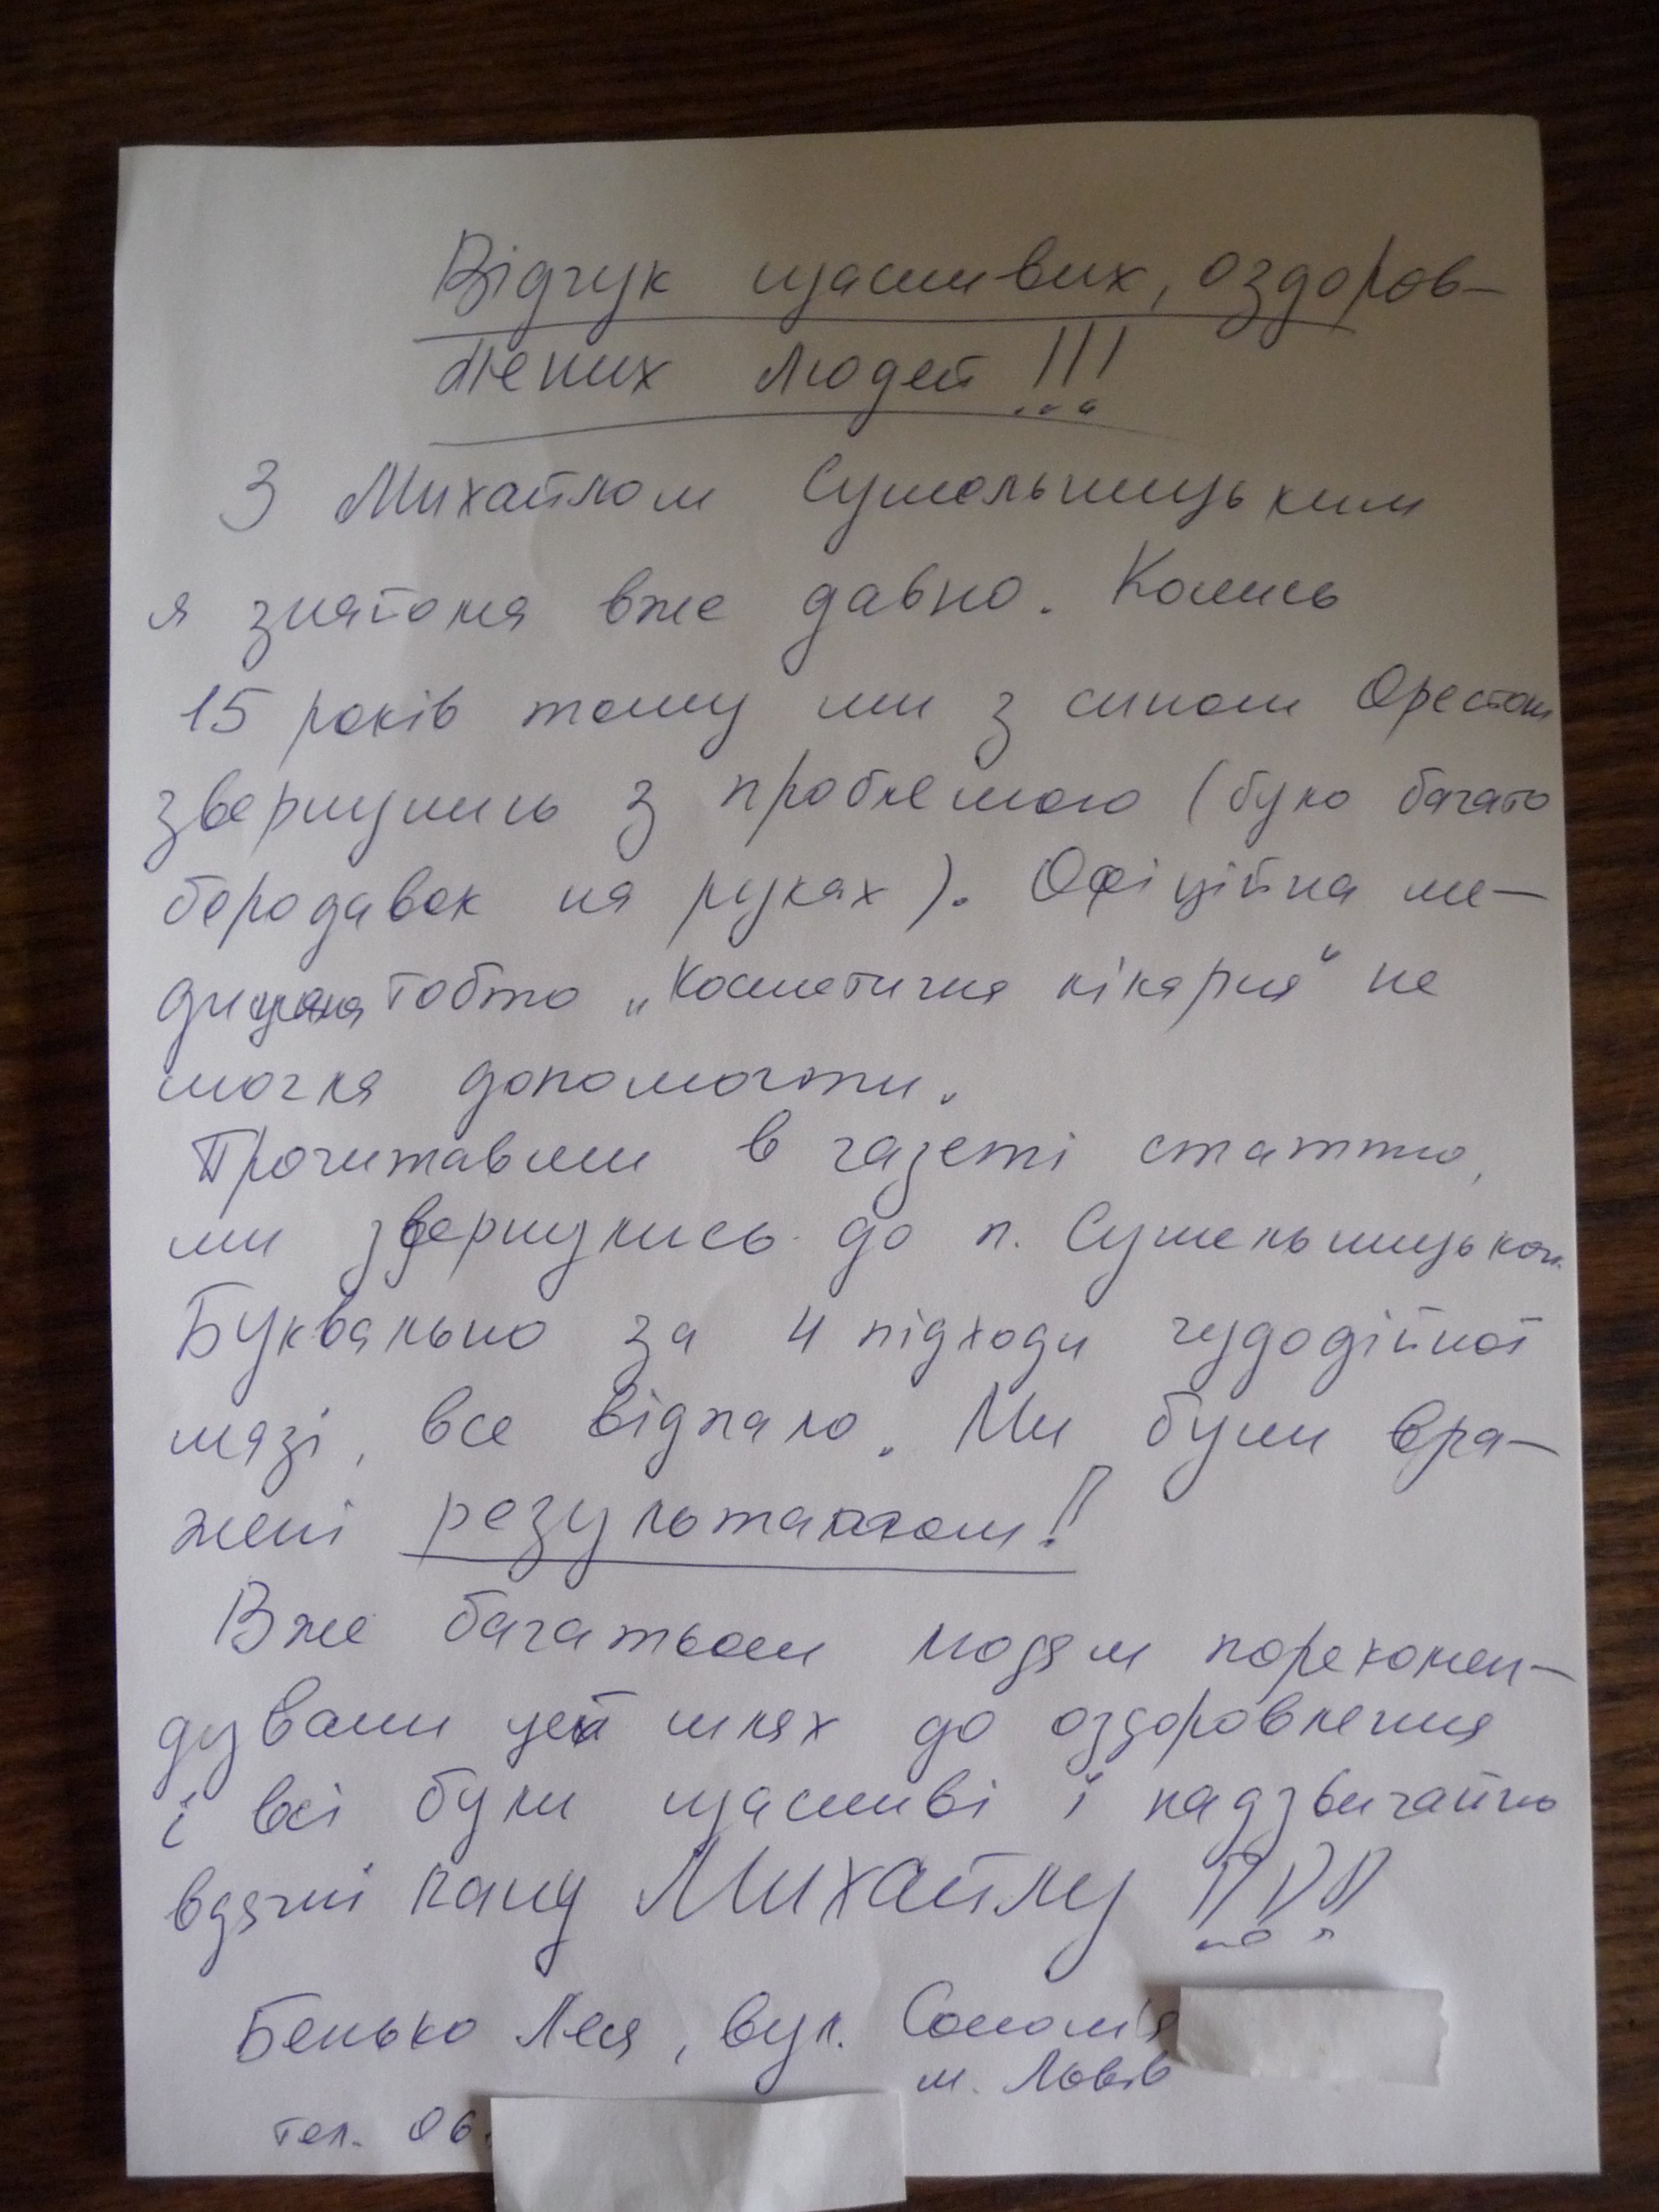 Відгук щасливих, оздоров-
лених людей!!!
З Михайлом Сушельницьким
я знайома вже давно. Колись
15 років тому ми з сином Орестом
звернулись з проблемою (було багато
бородавок на руках). Офіційна ме-
дицина тобто „Косметична лікарня" не
могла допомогти.
Прочитавши в газеті статтю,
ми звернулись до п. Сушельницьком.
Буквально за 4 підходи чудодійної
мазі, все відпало. Ми були вра-
жені результатом!
Вже багатьом людям порекомен-
дували цей шлях до оздоровлення
і всі були щасливі і надзвичайно
вдячні пану Михайлу!!!
Бенько Леся, вул. Соломія
м. Львів
тел. 06